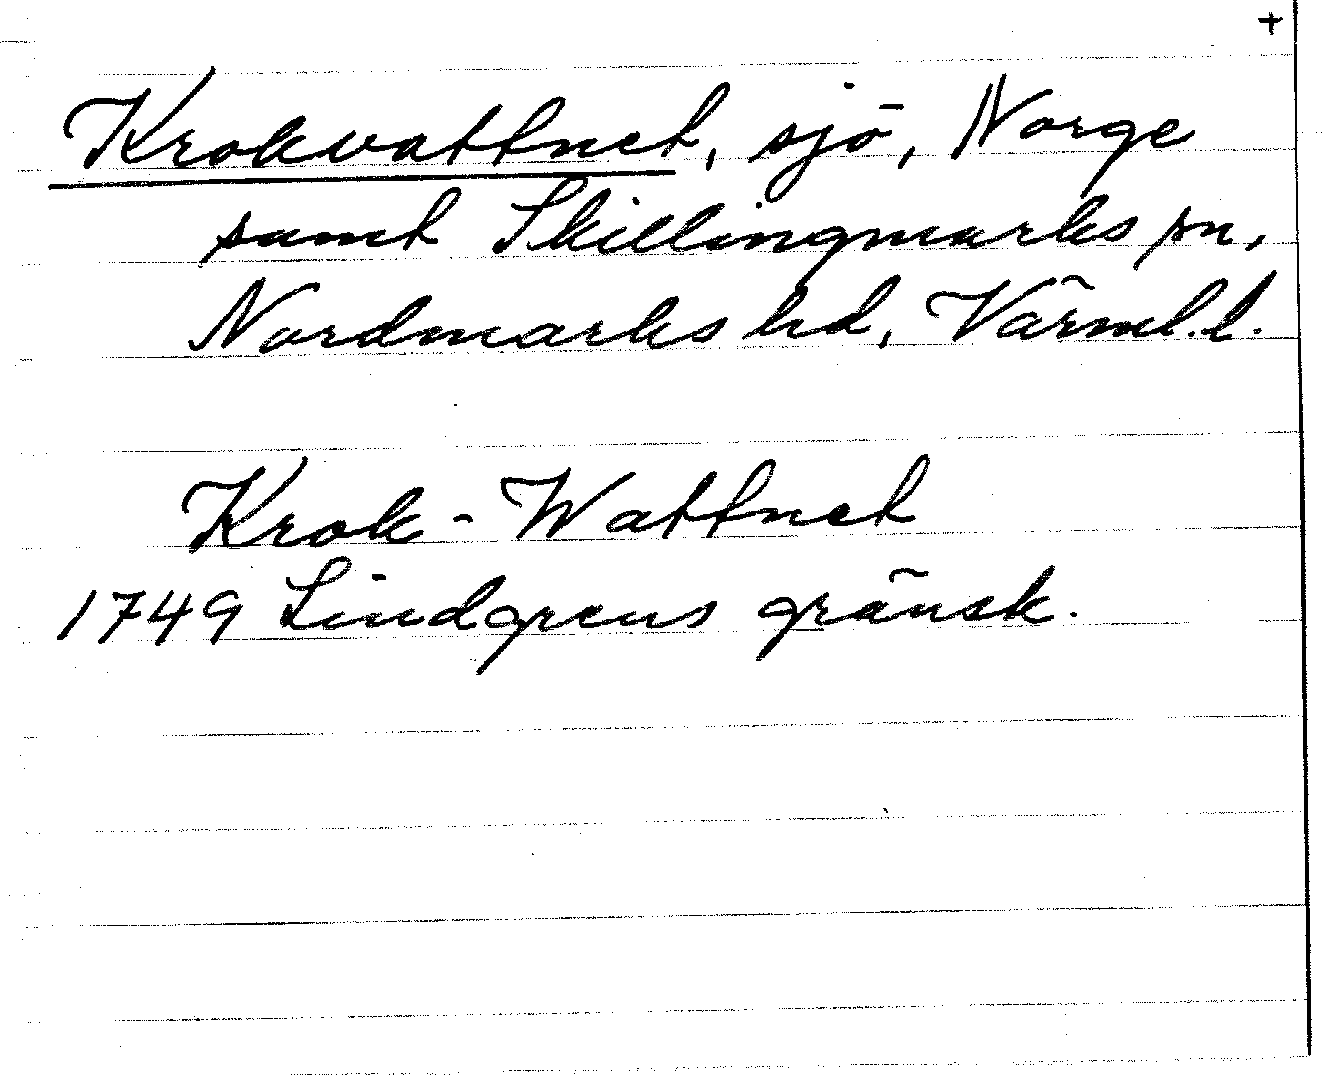 +
Krokvattnet, sjö, Norge
samt Skillingmarks sn,
Nordmarks hd, Värml.l.
Krok-Wattnet
1749 Lindgrens gränsk.